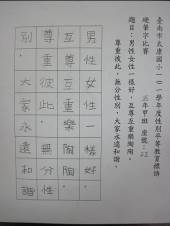 臺南市太康國小一○一學年度性別平等教育標語
硬筆字比賽
五年甲班 座號:22
題目:男性女性一樣好,互尊互重樂陶陶。
尊重彼此,無分性別,大家永遠和諧。
男性女性一樣好,
互尊互重樂陶陶。
尊重彼此,無分性
別,大家永遠和諧